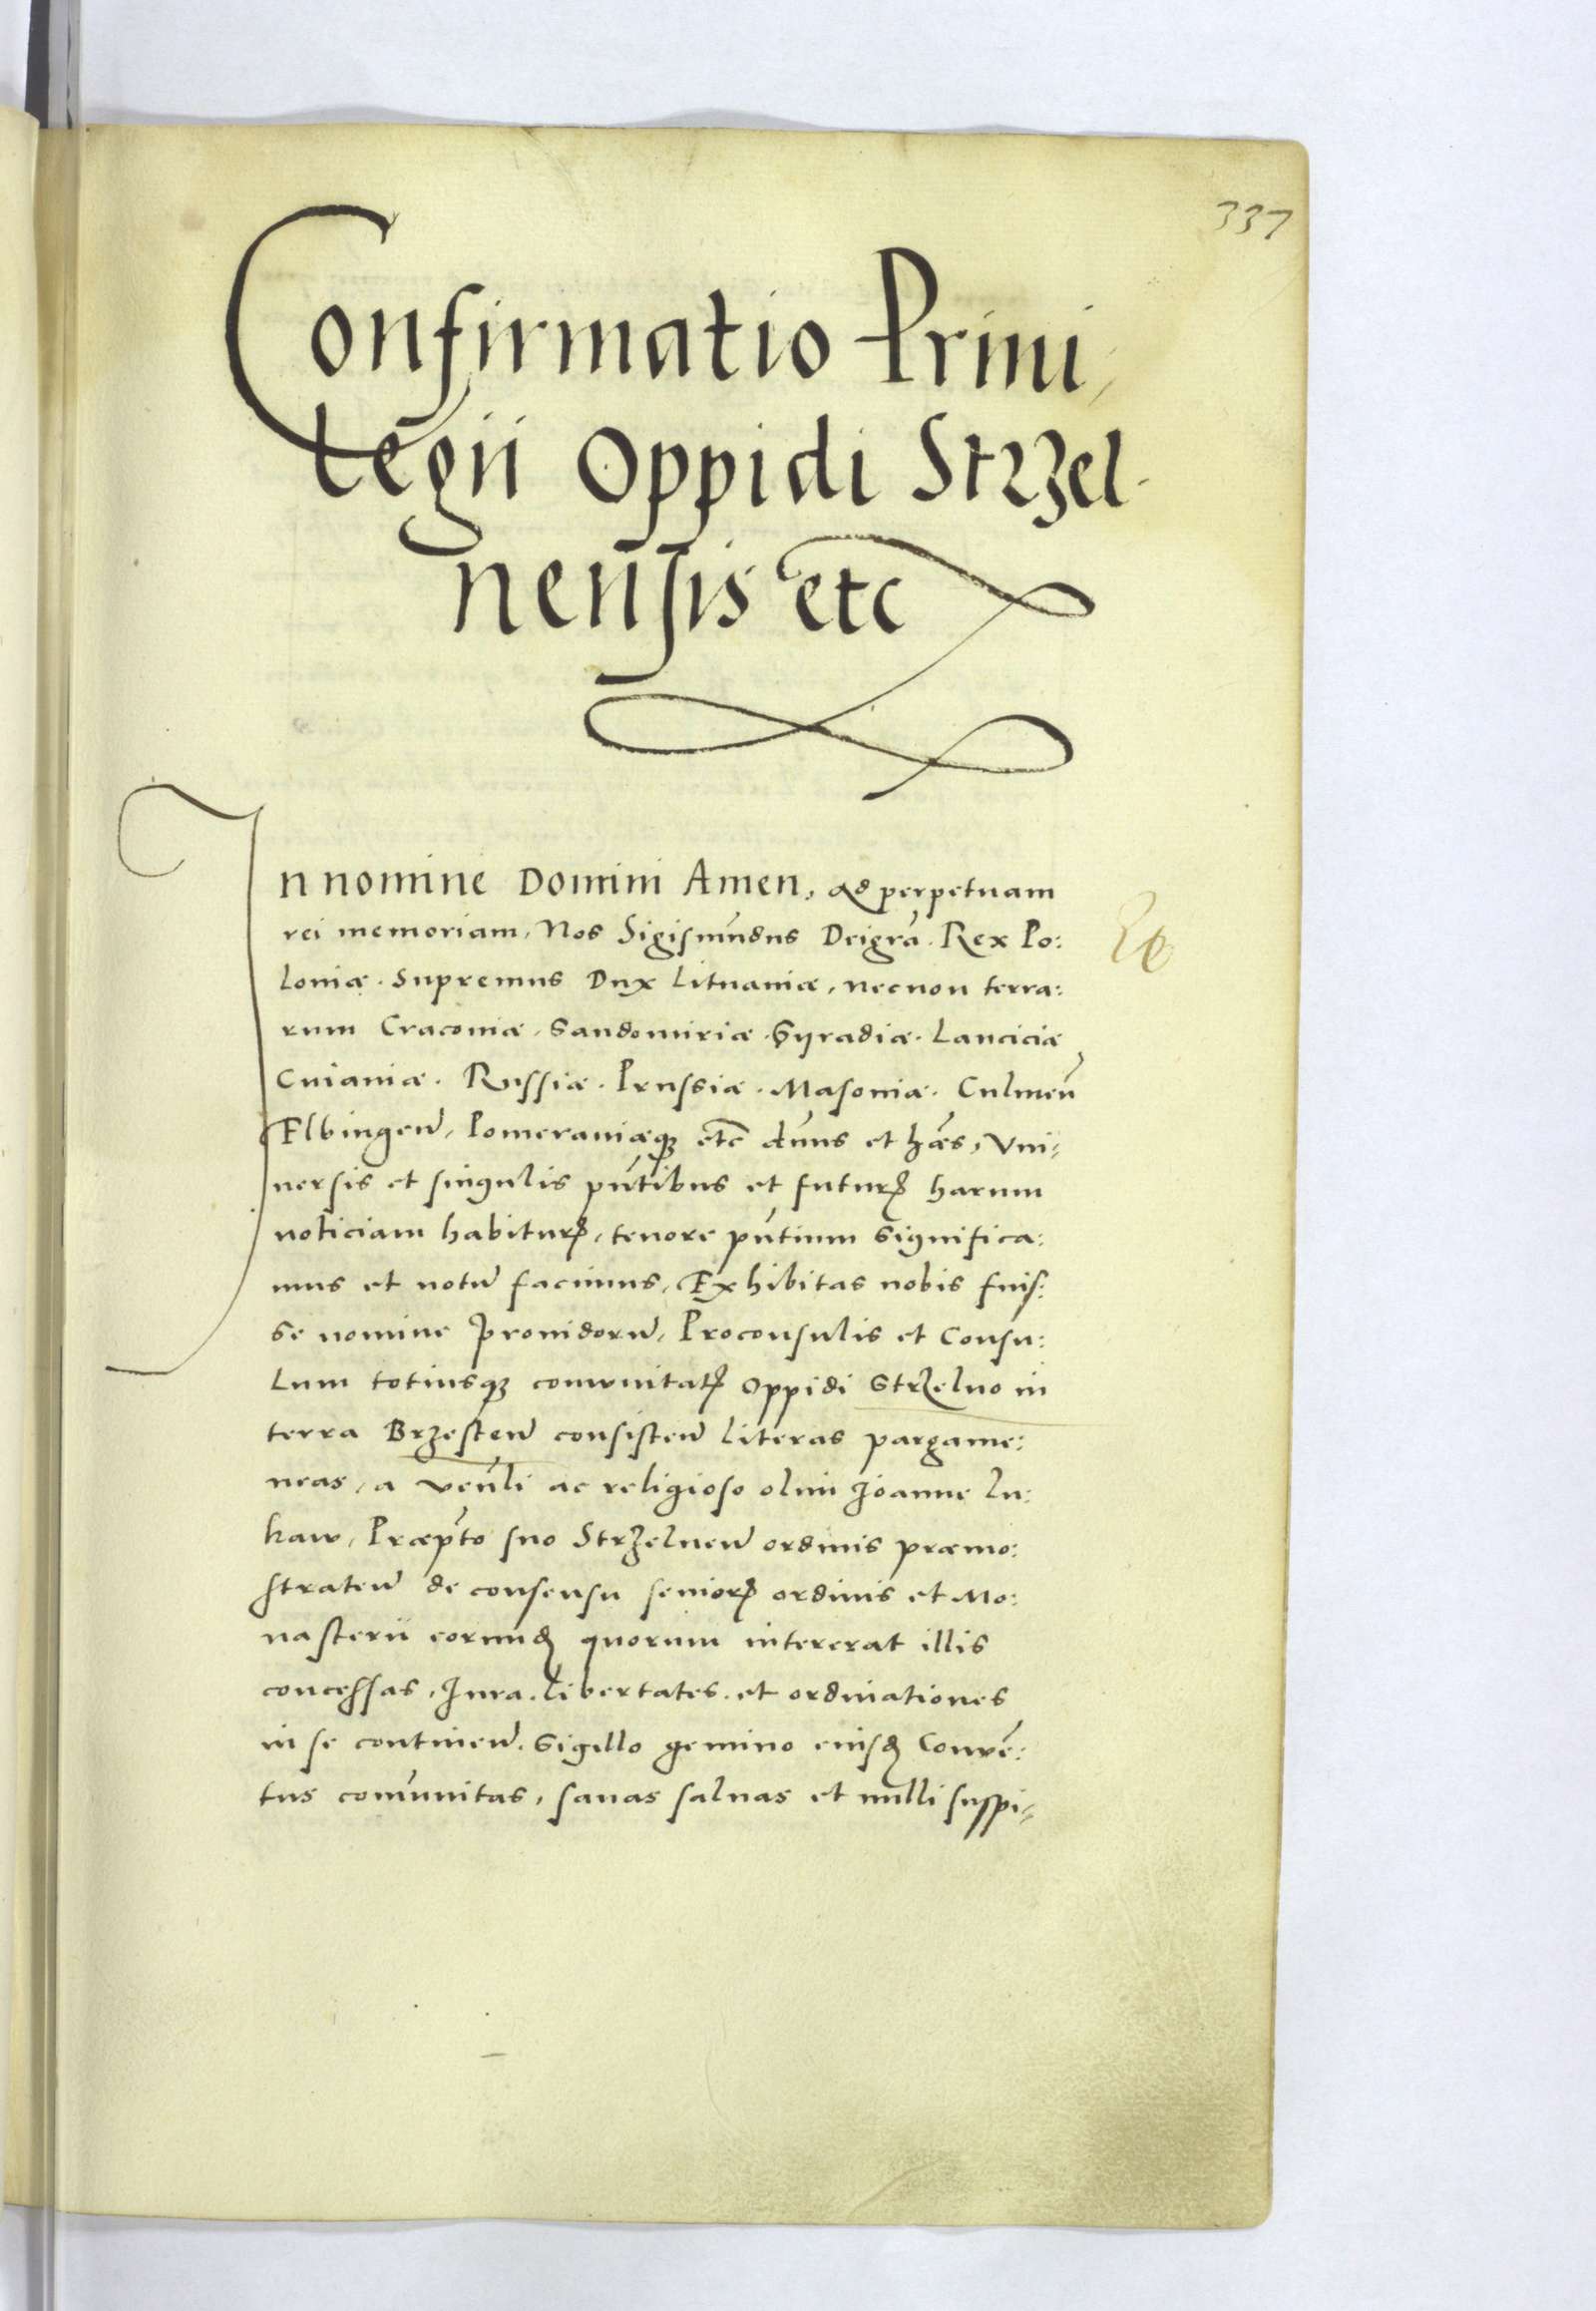 337
Confirmatio Priui,
legii Oppidi Strzel-
nensis etc
In nomine Domini Amen, ad perpetuam
rei memoriam, Nos Sigismūdus Dei grā. Rex Po:
loniæ. Supremus Dux Lituaniæ, necnon terra:
rum Cracouiæ, Sandomiriæ. Syradiæ. Lanciciæ
Cuiauiæ. Russiæ. Prussiæ. Masouiæ. Culmeñ
Elbingeñ, Pomeraniæqꝫ etc̄ dn̄us et hǣs, Vni,
uersis et singulis pūtibus et futurꝭ harum
noticiam habiturꝭ, tenore pūtium significa:
mus et notū facimus, Exhibitas nobis fuis:
se nomine prouidorū, Proconsulis et Consu:
lum totiusqꝫ com̄unitatꝭ oppidi Strzelno in
terra Brzesteñ consisteñ literas pargame:
neas, a veūli ac religioso olim Joanne Lu:
kaw, Præpto suo Strzelneñ ordinis præmo:
strateñ de consensu seniorꝭ ordinis et Mo:
nasterii eorundꝫ quorum intererat illis
concessas, Jura. libertates. et ordinationes
in se contineñ. Sigillo gemino eiusdꝫ Conuē:
tus com̄unitas, sanas saluas et nulli suspi,